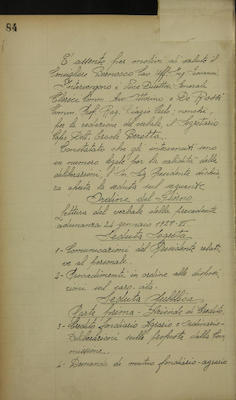 84
E' assente per motivi di salute il
Consigliere Bernocco Cav. Uff. Ing. Giovanni
Intervengono i Vice Direttori Generali
Comm. Avv. e De Rossi
Comm. Prof. Rag. Biagio Carlo, nonché,
per la redazione del verbale, il Segretario
Capo Dott. Ercole Beretta.
Constatato che gli intervenuti sono
in numero legale per la validità delle
deliberazioni, l'On. Sig. Presidente dichia-
ra aperta la seduta sul seguente
Ordine del Giorno
Lettura del verbale della precedente
adunanza 24 gennaio
Seduta Segreta
1- Comunicazioni del Presidente relati-
ve al personale.
2- Provvedimenti in ordine alle
Seduta Pubblica
Parte Prima - Aziende di Credito.
3- Credito fondiario Agrario e Ordinario-
Deliberazioni sulle proposte della Com-
missione.
4- Domande di mutuo fondiario-agrario